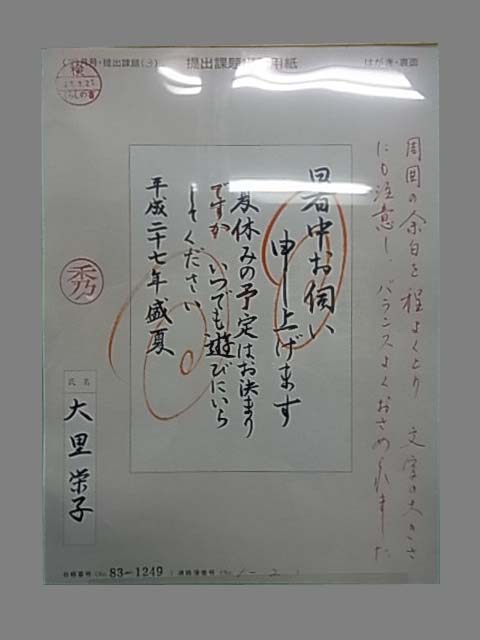 号・提出課題(3)
提出課題 用紙
はがき・裏面
検
周囲の余白を程よくとり 文字の大きさ
にも注意し、バランスよくおさめられました
暑中お伺い
申し上げます
夏休みの予定はお決まり
ですか いつでも遊びにいら
してください
平成二十七年盛夏
秀
氏名
大里栄子
83-1249
1-2